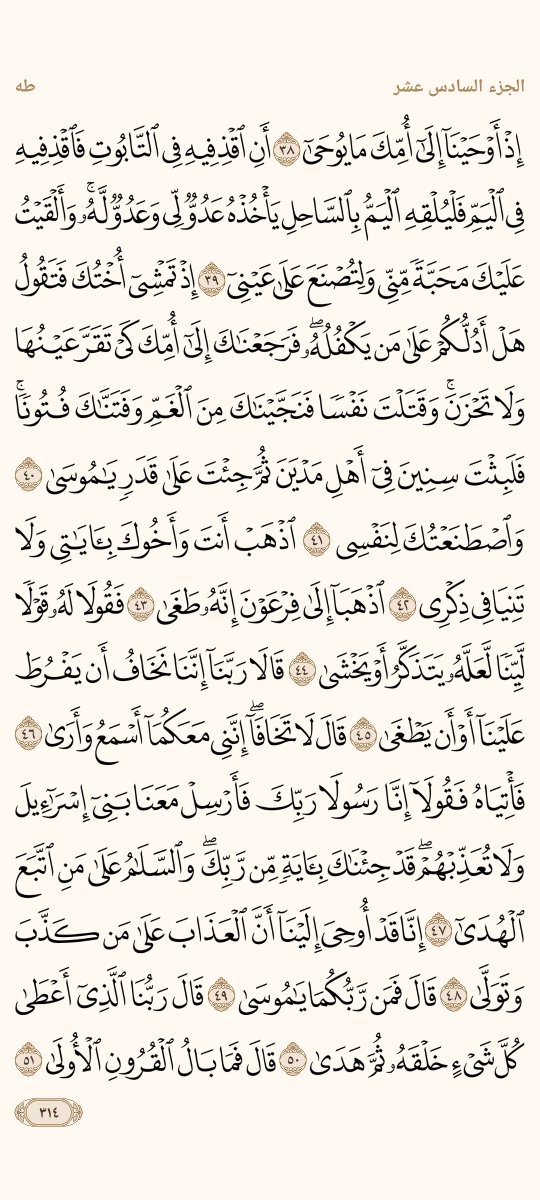 الجزء السادس عشر
طه
إِذْ أَوْحَيْنَآ إِلَىٰٓ أُمِّكَ مَا يُوحَىٰٓ ٣٨ أَنِ ٱقْذِفِيهِ فِى ٱلتَّابُوتِ فَٱقْذِفِيهِ
فِى ٱلْيَمِّ فَلْيُلْقِهِ ٱلْيَمُّ بِٱلسَّاحِلِ يَأْخُذْهُ عَدُوٌّ لِّى وَعَدُوٌّ لَّهُۥ ۚ وَأَلْقَيْتُ
عَلَيْكَ مَحَبَّةً مِّنِّى وَلِتُصْنَعَ عَلَىٰ عَيْنِىٓ ٣٩ إِذْ تَمْشِىٓ أُخْتُكَ فَتَقُولُ
هَلْ أَدُلُّكُمْ عَلَىٰ مَن يَكْفُلُهُۥ ۖ فَرَجَعْنَـٰكَ إِلَىٰٓ أُمِّكَ كَىْ تَقَرَّ عَيْنُهَا
وَلَا تَحْزَنَ ۚ وَقَتَلْتَ نَفْسًا فَنَجَّيْنَـٰكَ مِنَ ٱلْغَمِّ وَفَتَنَّـٰكَ فُتُونًا ۚ
فَلَبِثْتَ سِنِينَ فِىٓ أَهْلِ مَدْيَنَ ثُمَّ جِئْتَ عَلَىٰ قَدَرٍ يَـٰمُوسَىٰ ٤٠
وَٱصْطَنَعْتُكَ لِنَفْسِى ٤١ ٱذْهَبْ أَنتَ وَأَخُوكَ بِـَٔايَـٰتِى وَلَا
تَنِيَا فِى ذِكْرِى ٤٢ ٱذْهَبَآ إِلَىٰ فِرْعَوْنَ إِنَّهُۥ طَغَىٰ ٤٣ فَقُولَا لَهُۥ قَوْلًا
لَّيِّنًا لَّعَلَّهُۥ يَتَذَكَّرُ أَوْ يَخْشَىٰ ٤٤ قَالَا رَبَّنَآ إِنَّنَا نَخَافُ أَن يَفْرُطَ
عَلَيْنَآ أَوْ أَن يَطْغَىٰ ٤٥ قَالَ لَا تَخَافَآ ۖ إِنَّنِى مَعَكُمَآ أَسْمَعُ وَأَرَىٰ ٤٦
فَأْتِيَاهُ فَقُولَآ إِنَّا رَسُولَا رَبِّكَ فَأَرْسِلْ مَعَنَا بَنِىٓ إِسْرَٰٓءِيلَ
وَلَا تُعَذِّبْهُمْ ۖ قَدْ جِئْنَـٰكَ بِـَٔايَةٍ مِّن رَّبِّكَ ۖ وَٱلسَّلَـٰمُ عَلَىٰ مَنِ ٱتَّبَعَ
ٱلْهُدَىٰٓ ٤٧ إِنَّا قَدْ أُوحِىَ إِلَيْنَآ أَنَّ ٱلْعَذَابَ عَلَىٰ مَن كَذَّبَ
وَتَوَلَّىٰ ٤٨ قَالَ فَمَن رَّبُّكُمَا يَـٰمُوسَىٰ ٤٩ قَالَ رَبُّنَا ٱلَّذِىٓ أَعْطَىٰ
كُلَّ شَىْءٍ خَلْقَهُۥ ثُمَّ هَدَىٰ ٥٠ قَالَ فَمَا بَالُ ٱلْقُرُونِ ٱلْأُولَىٰ ٥١
٣١٤